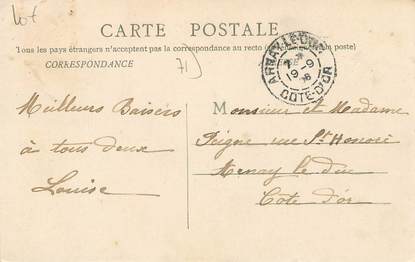 lot
CARTE POSTALE
Tous les pays étrangers n'acceptent pas la correspondance au recto (se renseigner à la poste)
CORRESPONDANCE
71
ARNAY-LE-DUC
19-9
COTE-D'OR
Meilleurs Baisers
à tous deux
Louise
Monsieur et Madame
rue St Honoré
Arnay le duc
Côte d'or